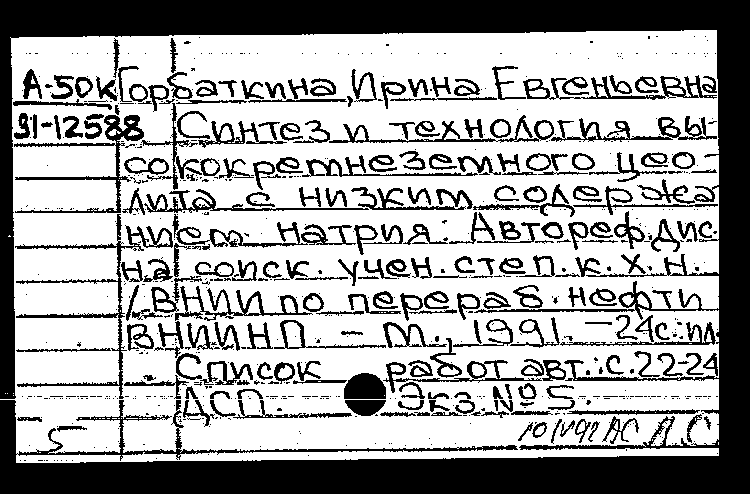 А-50к Горбаткина, Ирина Евгеньевна
91-12588 Синтез и технология вы-
сококремнеземного цео-
лита с низким содержа
нием натрия: Автореф. дис.
на соиск. учен. степ. к. х. н.
/ ВНИИ по перераб. нефти
ВНИИНП. – М., 1991. – 24с.: ил.
Список работ авт.: с. 22-24
ДСП. Экз. № 5.
5